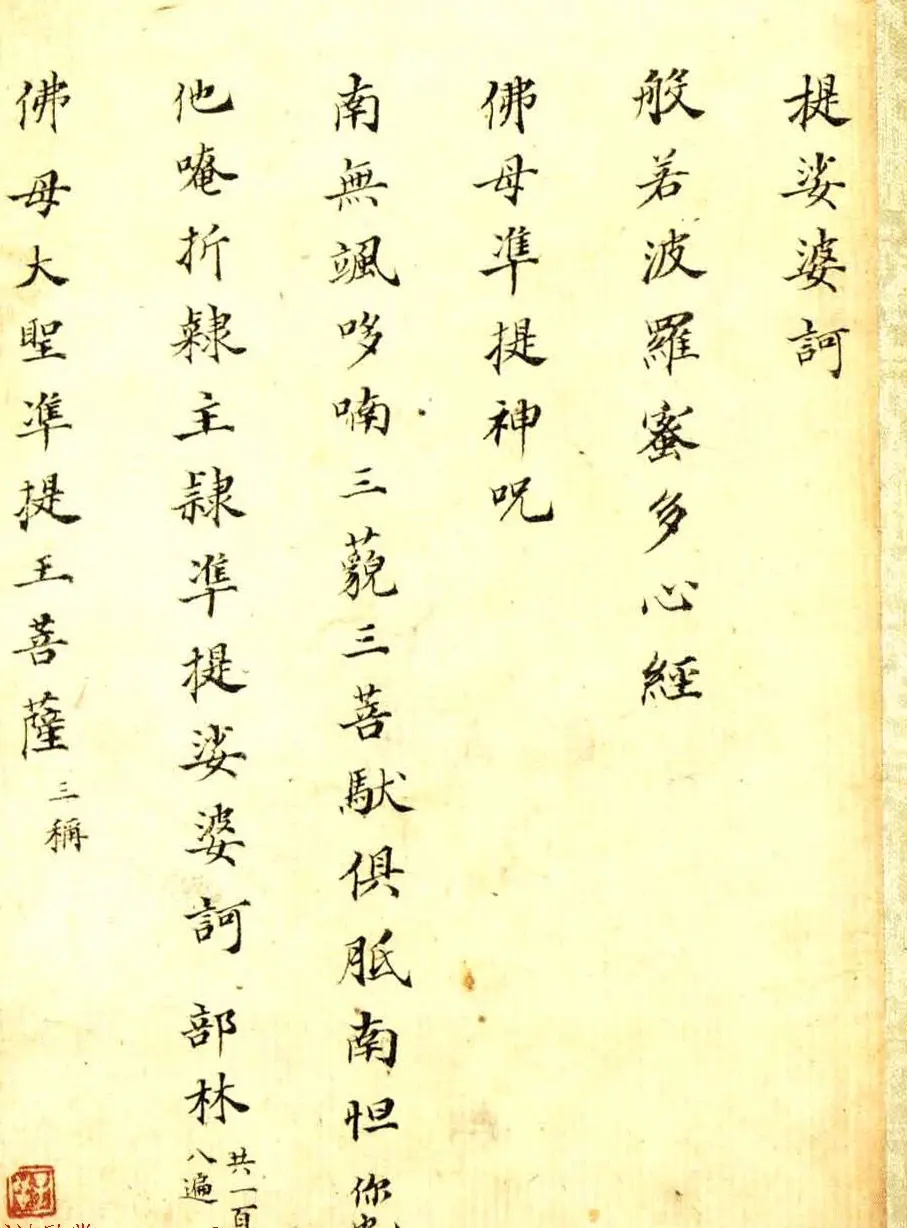 提娑婆訶
般若波羅蜜多心經
佛母凖提神呪
南無颯哆喃三藐三菩馱俱胝南怛你
他唵折隸主隸凖提娑婆訶 部林 共一百八遍
佛母大聖凖提王菩薩 三稱